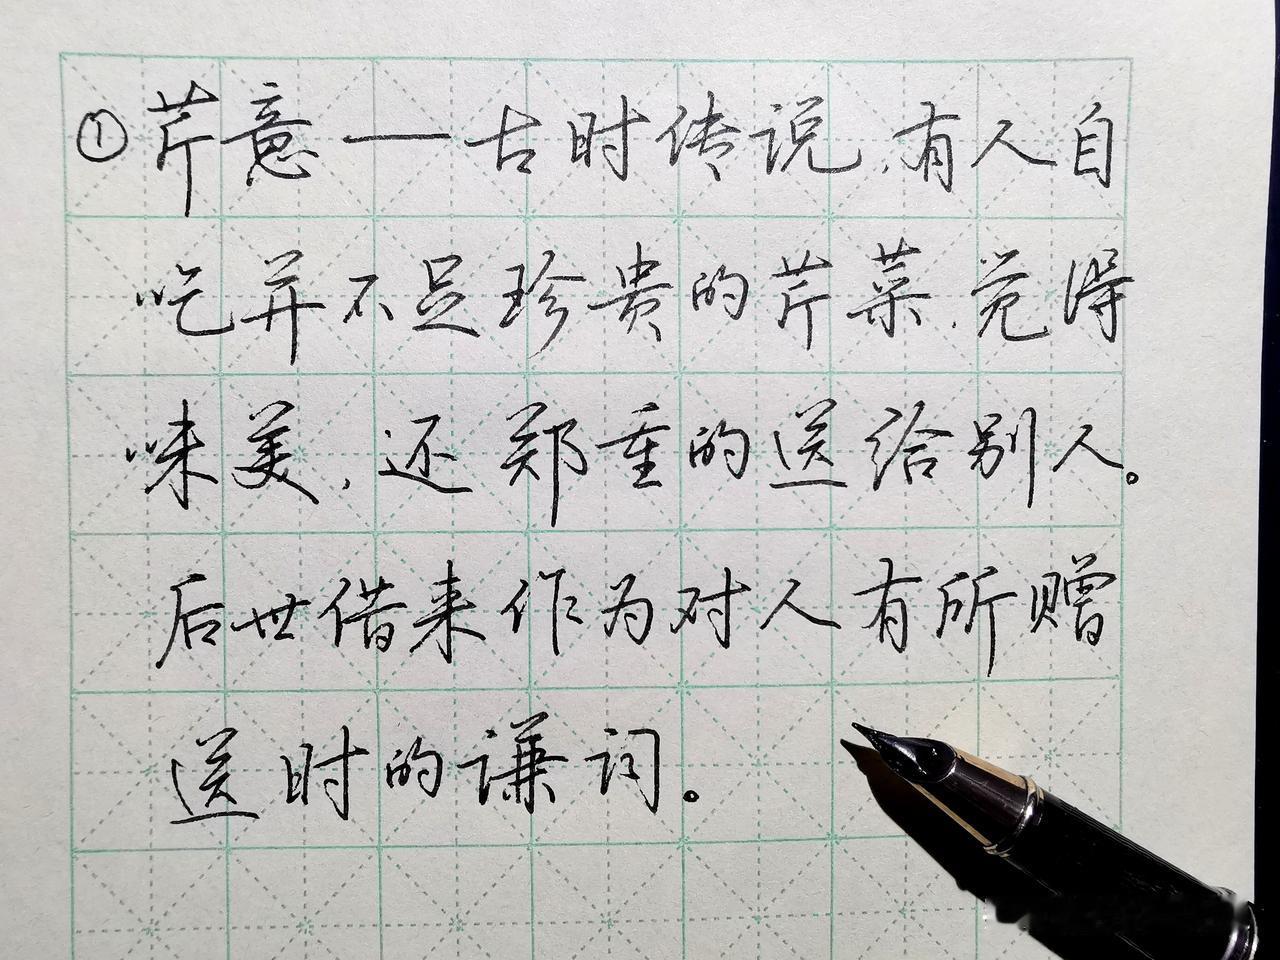 ①芹意一古时传说,有人自
吃并不足珍贵的芹菜,觉得
味美,还郑重的送给别人。
后世借来作为对人有所赠
送时的谦词。